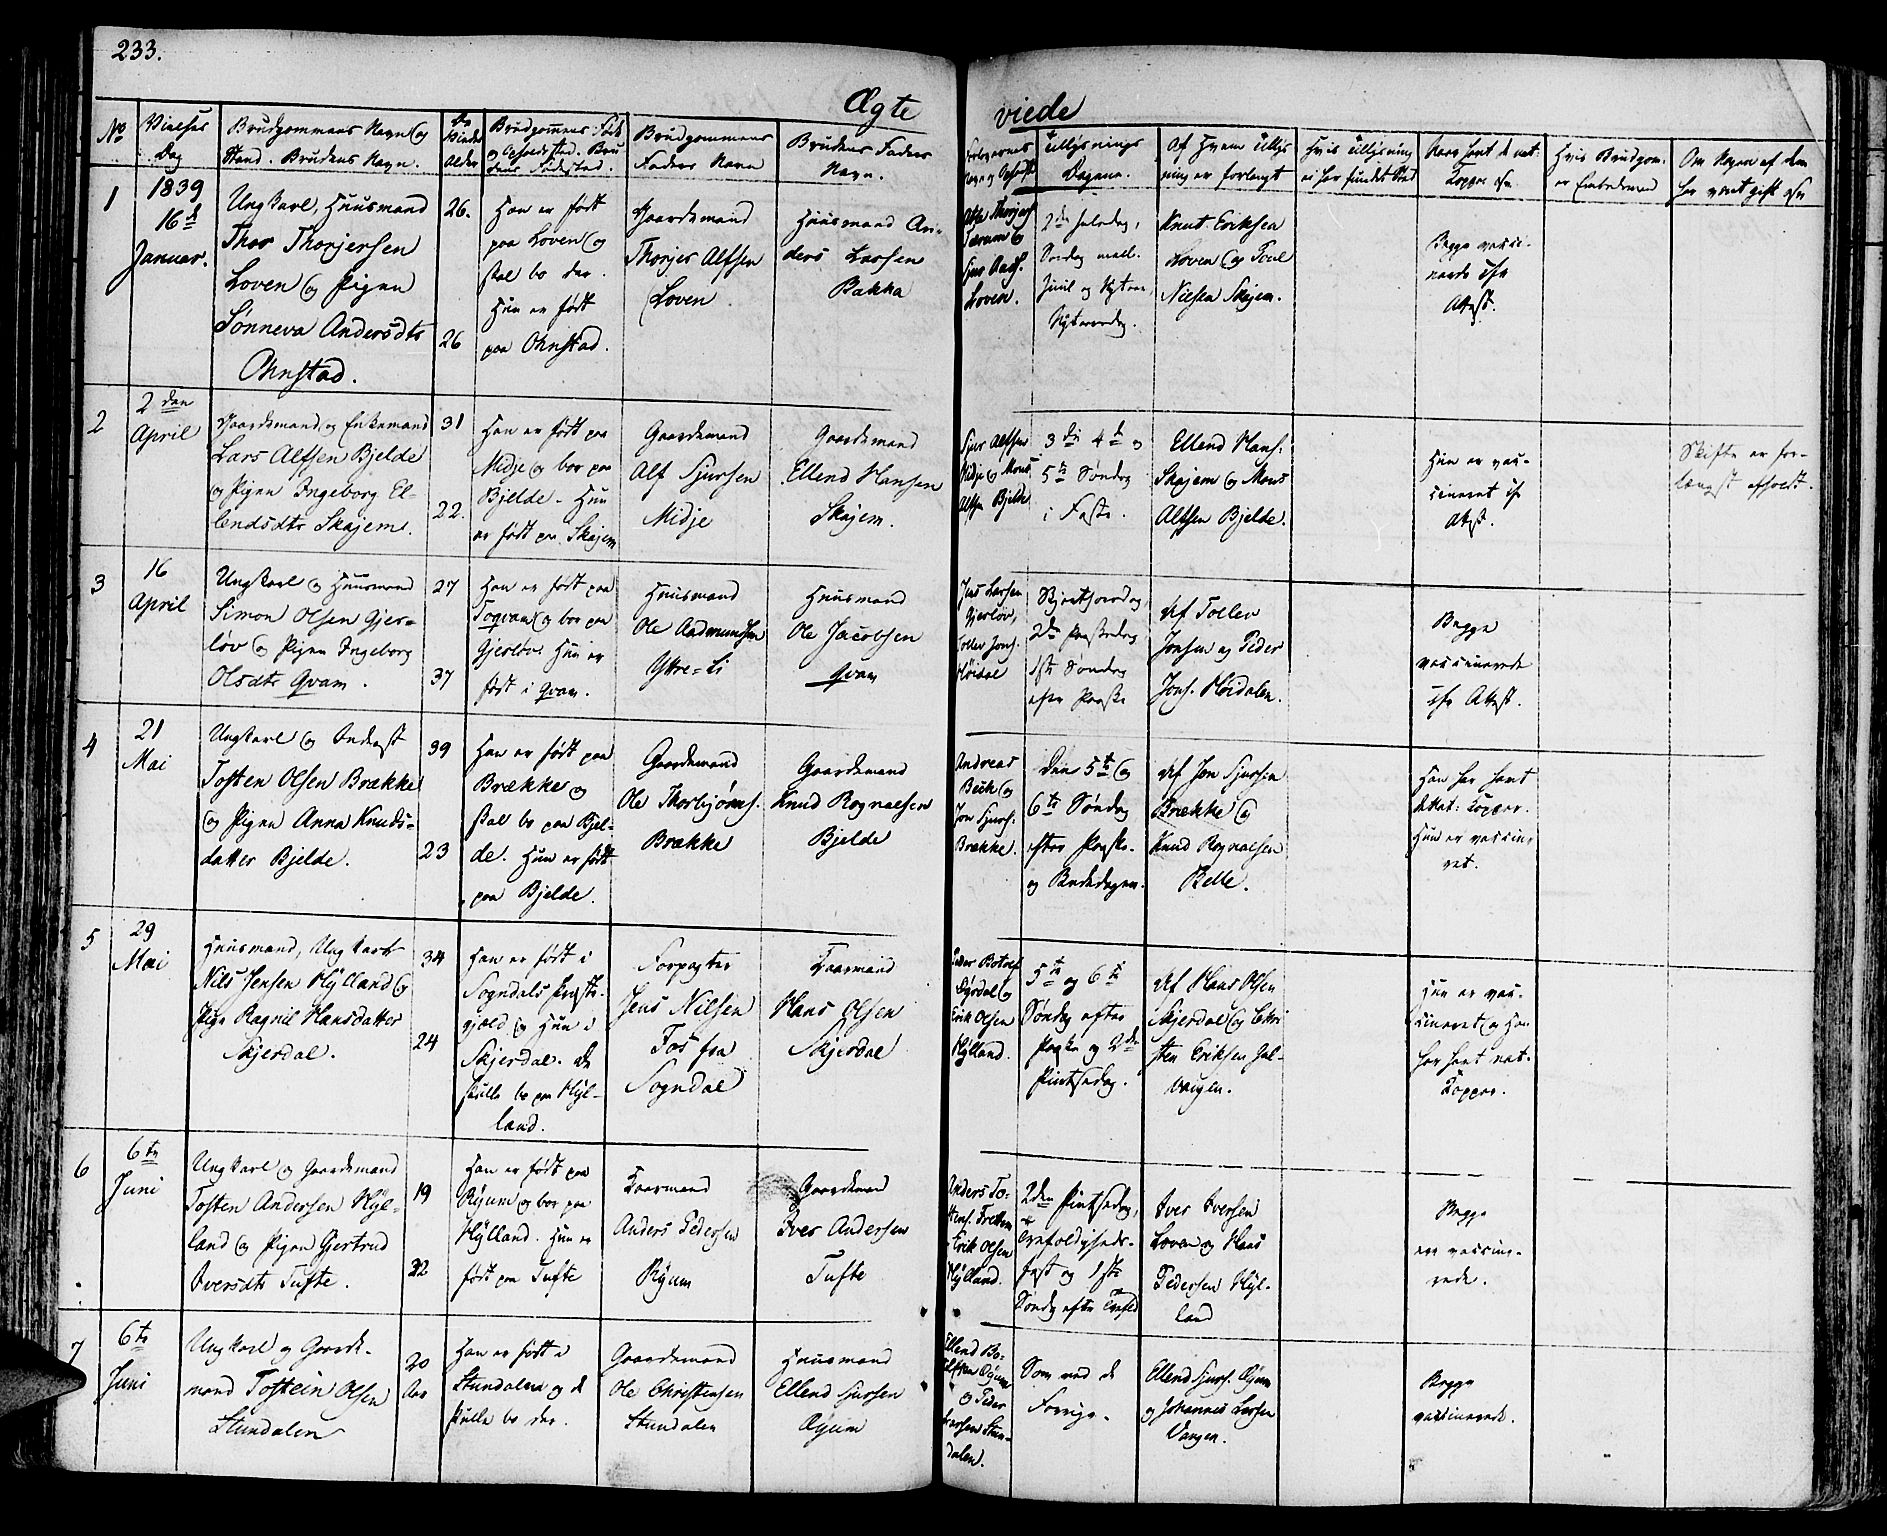 233.
Ægte viede
No
Vielses Dag
Brudgommens Navn og Stand. Brudens Navn.
De Viedes Alder
Brudgommens Føde og Opholdsted. Brudens Fødested.
Brudgommens Faders Navn
Brudens Faders Navn.
Forlovernes Navn og Opholdst
Tillysnings Dagene.
Af Hvem Tillysning er forlangt
Hvis Tillysning er har fundet Sted
Have havt de nat: Kopper ofn
Hvis Brudgom. er Embedsmand
Om Nogen af dem har været gift ofn
1
1839
16d
Januar.
Ungkarl, Huusmand
Thor Thorjersen
Loven og Pigen
Sønneva Andersdtr
Ohnstad.
26.
26
Han er født
paa Loven og
skal bo der.
Hun er født
paa Ohnstad.
Gaardmand
Thorjer Alfsen
Loven.
Huusmand An-
ders Larsen
Bakka
Loven.
2den Juledag,
Søndag mell.
Juul og Nytaar,
Nytaarsdag.
Knut Eriksen
Loven og Poul
Nielsen Skajem.
Begge vacci-
nerede ifr
Attest.
2
2den
April
Gaardmand og Enkemand
Lars Alfsen Bjelde
og Pigen Ingeborg El-
lendsdtr Skajem.
31
22.
Han er født paa
Midje og bor paa
Bjelde. Hun
er født paa Skajem
Gaardmand
Alf Sjursen
Midje
Gaardmand
Ellend Hansen
Skajem.
Sjur Alfsen
Midje og Mons
Alfsen Bjelde
3die 4d og
5te Søndag
i Faste.
Ellend Hans.
Skajem og Mons
Alfsen Bjelde.
Hun er vac-
cineret ifr
Attest.
Skifte er for-
længst afholdt.
3
16
April
Ungkarl og Huusmand
Simon Olsen Gjer-
løv og Pigen Ingeborg
Olsdtr Qvam.
27
37
Han er født paa
Toqvam og bor paa
Gjerløv. Hun er
født i Qvam.
Huusmand
Ole Aadmundsen
Yttre-Li
Huusmand
Ole Jacobsen
Qvam
Jens Larsen
Gjerløv,
Tollev Jons.
Høidal
Skjertorsdag
2den Paaskedag
1ste Søndag
efter Paaske
Af Tollev
Jonsen og Peder
Jons. Høidalen.
Begge
vaccinerede
ifr Attest.
4
21
Mai
Ungkarl og Inderst
Tosten Olsen Brække
og Pigen Anna Knuds-
datter Bjelde.
39
23
Han er født paa
Brække og
skal bo paa Bjel-
de. Hun er født
paa Bjelde.
Gaardmand
Ole Thorbjørns.
Brække
Gaardmand
Knud Rognalsen
Bjelde
Andreas
Beck og
Jon Sjurs.
Brække.
Den 5te og
6te Søndag
efter Paaske.
og Bededagen.
Af Jon Sjursen
Brække og
Knud Rognalsen
Belle.
Han har havt
de nat: Kopper.
Hun er vaccine-
ret.
5
29
Mai
Huusmand, Ungkarl
Nils Jensen Hylland og
Pige Ragnil Hansdatter
Skjerdal.
34
24
Han er født i
Sogndals Præste-
gjeld og Hun i
Skjerdal. De
skulle bo paa Hyl-
land.
Forpagter
Jens Nilsen
Fos fra
Sogndal
Kaarmand
Hans Olsen
Skjerdal
Peder Botolf
Dyrdal og
Erik Olsen
Hylland.
5te og 6te
Søndag efter
Paaske og 2den
Pintsedag.
Af Hans Olsen
Skjerdal og Chri
sten Eriksen Jal-
vangen.
Hun er vac-
cineret og Han
har havt nat.
Kopper.
6
6te
Juni
Ungkarl og Gaardmand
Tosten Andersen Hyl-
land og Pigen Gjertrud
Iversdtr Tufte.
19
22
Han er født paa
Ryum og bor paa
Hylland. Hun er
født paa Tufte
Kaarmand
Anders Pedersen
Ryum
Gaardmand
Iver Andersen
Tufte
Anders To-
stens. Frettem
Erik Olsen
Hylland.
2den Pintsedag,
Trefoldigheds-
fest og 1ste
Søndag efter Trefold
Iver Iversen
Loven og Hans
Pedersen Hyl-
land
Begge
ere vaccine-
rede.
7
6te
Juni
Ungkarl og Gaard-
mand Tostein Olsen
Stundalen
20
Aar
Han er født i
Stundalen og de
skulle bo der.
Gaardmand
Ole Christensen
Stundalen
Huusmand
Ellend Sjursen
Øyum
Ellend Bo-
tolfsen Øyum
og Peder
Larsen Stun-
dalen.
Som ved de
Forrige.
Ellend Sjurs. Øyum
og Johannes Larsen
Vangen.
Begge
vaccinerede.